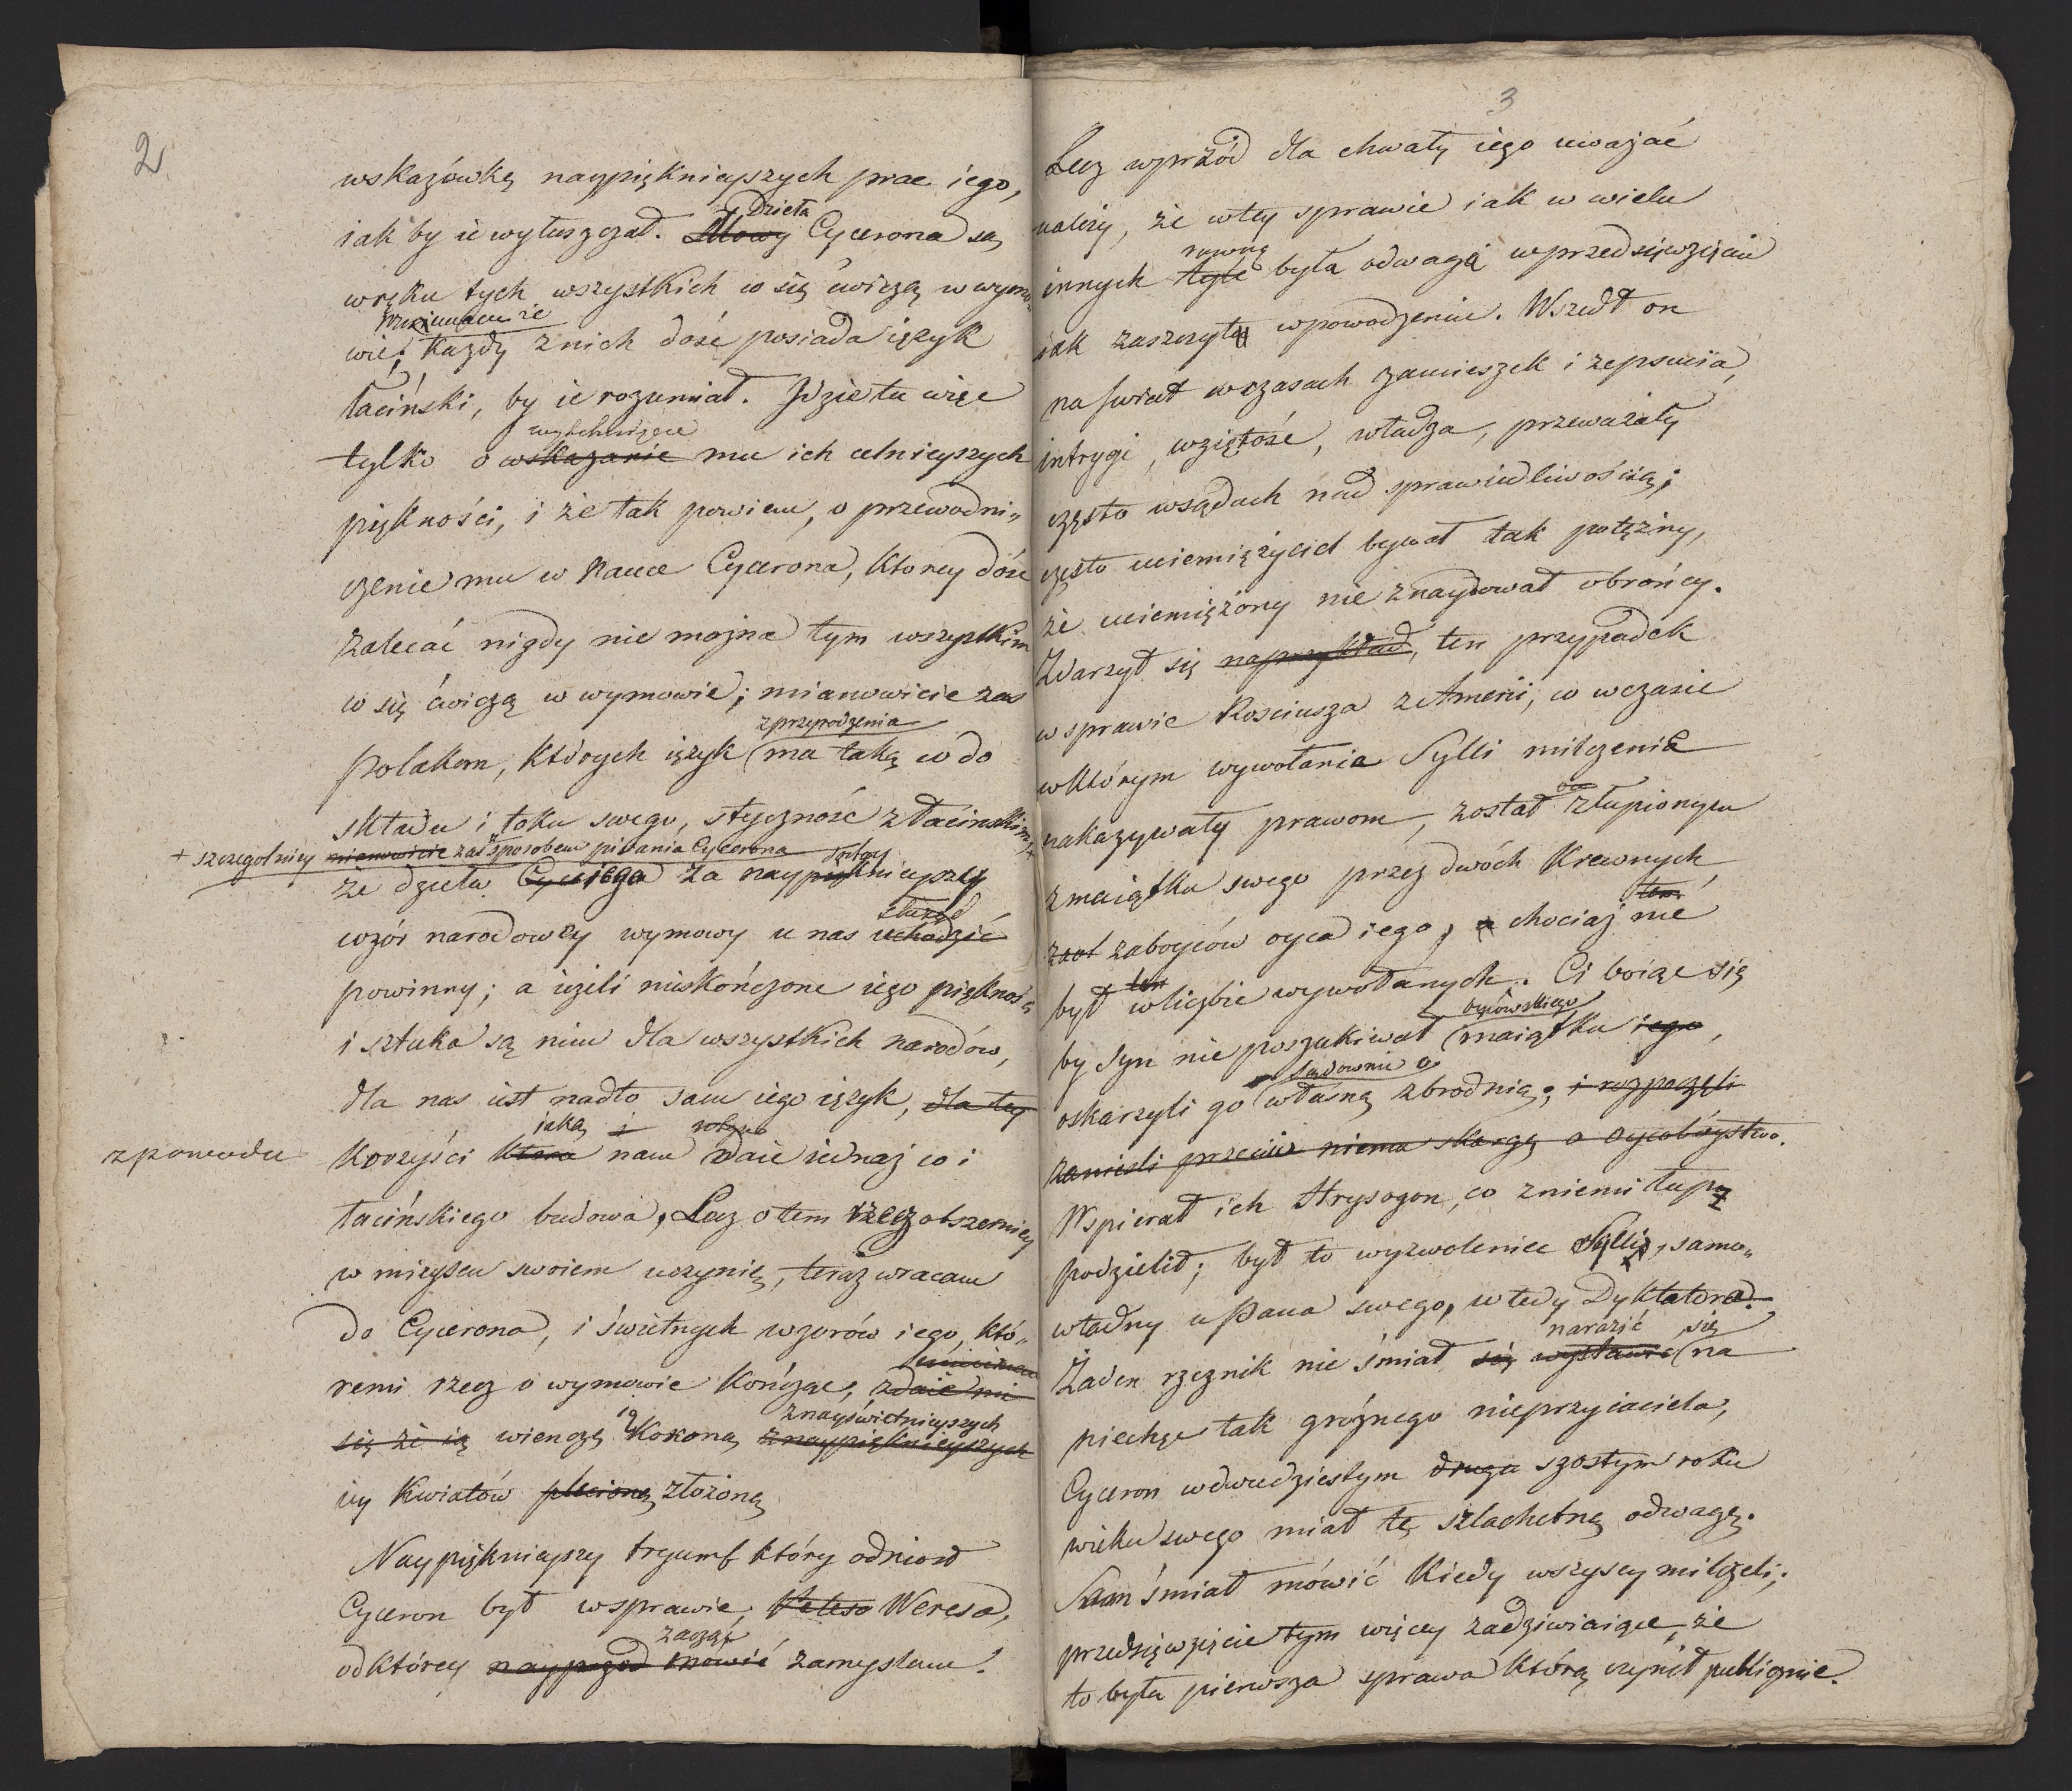 2
wskazówkę naypięknieyszych prac iego,
iak by ie wyłuszczał. Mowy Dzieła Cycerona są
wręku tych wszystkich co się ćwiczą w wymo-
wie; mniemam że każdy znich dość posiada ięzyk
łaciński, by ie rozumiał. Idzie tu więc
tylko o wskazanie mu ich celnieyszych
piękności, i że tak powiem, o przewodni„
czenie mu w nauce Cycerona, którey dość
zalecać nigdy nie można tym wszystkim
co się ćwiczą w wymowie; mianowicie zas
polakom, których ięzyk z przyrodzenia ma taką co do
składu i toku swego, styczność z łacińskim, +
+ szczegolniey mianowicie zaś sposobem pisania Cycerona
że dzieła Cyc iego za naypięknieyszy
wzór narodowey wymowy u nas uchodzić służyć
powinny; a ieżeli nieskończone iego piękności
i sztuka są nim dla wszystkich narodów,
dla nas iest nadto sam iego ięzyk, dla tey
z powodu korzyści która iaką nam daie iednaż co i
łacińskiego budowa, Lecz otem rzecz obszerniey
w mieyscu swoiem uczynię, teraz wracam
do Cycerona, i świetnych wzorów iego, któ„
remi rzecz o wymowie kończąc, zdaie mi
się że ią wienczę ią koroną z naypięknieyszych z nayświetnieyszych
iey kwiatów plecioną złożoną
Naypięknieyszy tryumf który odniosł
Cyceron był wsprawie, Weresa,
odktórey nayprzod mowić zacząć zamyslam.
3
Lecz wprzód dla chwały iego uważać
należy, że wtey sprawie iak w wielu
innych tyle rowną była odwaga wprzedsięwzięciu
iak zaszczyty wpowodzeniu. Wszedł on
na świat wczasach zamieszek i zepsucia,
intrygi, wziętość, władza, przeważały
często wsądach nad sprawiedliwością;
często uciemiężyciel bywał tak potężny,
że uciemiężony nie znaydował obrońcy.
Zdarzył się naprzykład, ten przypadek
w sprawie Rosciusza z Amerii, co wczasie
wktórym wywołania Sylli milczenie
nakazywały prawom, został on złupionym
zmaiątku swego przez dwóch krewnych,
zaboyców oyca iego, a chociaż ten nie
był ten wliczbie wywołanych. Ci boiąc się
by syn nie poszukiwał oycowskiego maiątku iego,
oskarzyli go sądownie o własną zbrodnią; i rozpoczęli
zanieśli przeciw niemu skargę o oycobóystwo.
Wspierał ich Hryzogon, co zniemi łupy
podzielił; był to wyzwoleniec Sylli, samo„
władny u Pana swego, wtedy Dyktatora.
Żaden rzecznik nie śmiał się wystawić narazić się na
piechęc tak groźnego nieprzyiaciela,
Cyceron wdwudziestym drugu szostym roku
wieku swego miał tę szlachetną odwagę.
Sam śmiał mówić kiedy wszyscy milczeli;
przedsięwzięcie tym więcey zadziwiaiące, że
to była pierwsza sprawa którą czynił publicznie.